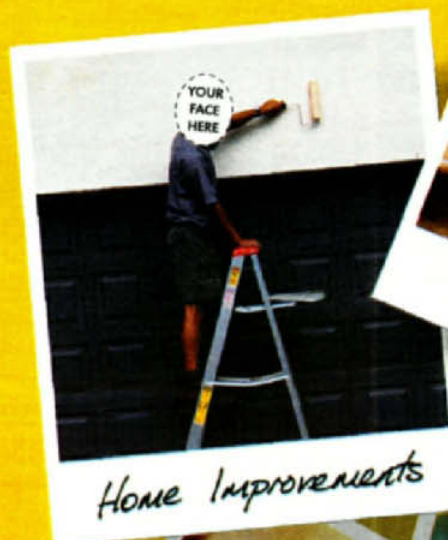 YOUR
FACE
HERE
Home Improvements